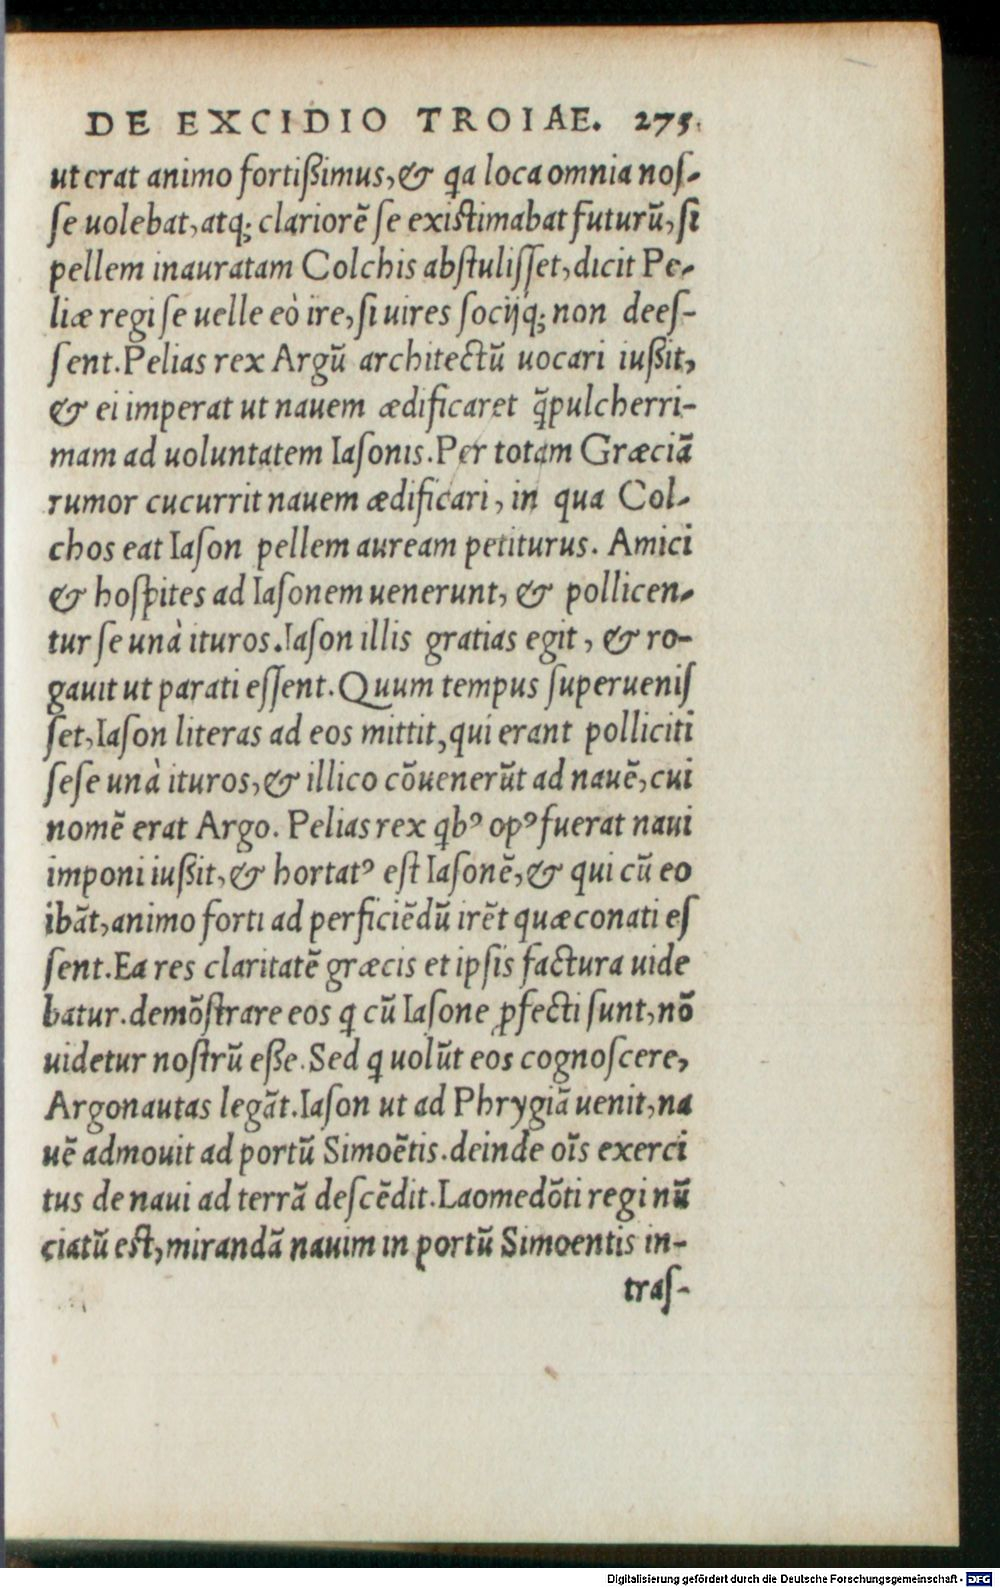 DE EXCIDIO TROIAE. 275.
ut erat animo fortißimus, & qa loca omnia noſ-
ſe uolebat, atq; clariorē ſe exiſtimabat futurū, ſi
pellem inauratam Colchis abſtuliſſet, dicit Pe-
liæ regi ſe uelle eò ire, ſi uires ſocijq; non deeſ-
ſent. Pelias rex Argū architectū uocari iußit,
& ei imperat ut nauem ædificaret q̃pulcherri-
mam ad uoluntatem Iaſonis. Per totam Græciā
rumor cucurrit nauem ædificari, in qua Col-
chos eat Iaſon pellem auream petiturus. Amici
& hoſpites ad Iaſonem uenerunt, & pollicen-
tur ſe unà ituros. Iaſon illis gratias egit, & ro-
gauit ut parati eſſent. Quum tempus ſuperueniſ
ſet, Iaſon literas ad eos mittit, qui erant polliciti
ſeſe unà ituros, & illico cōuenerūt ad nauē, cui
nomē erat Argo. Pelias rex qbꝰ opꝰ fuerat naui
imponi iußit, & hortatꝰ eſt Iaſonē, & qui cū eo
ibāt, animo forti ad perficiēdū irēt quæ conati eſ
ſent. Ea res claritatē græcis et ipſis factura uide
batur. demōſtrare eos q cū Iaſone ꝓfecti ſunt, nō
uidetur noſtrū eße. Sed q uolūt eos cognoſcere,
Argonautas legāt. Iaſon ut ad Phrygiā uenit, na
uē admouit ad portū Simoētis. deinde oīs exerci
tus de naui ad terrā deſcēdit. Laomedōti regi nū
ciatū eſt, mirandā nauim in portū Simoentis in-
traſ-
Digitalisierung gefördert durch die Deutsche Forschungsgemeinschaft - DFG